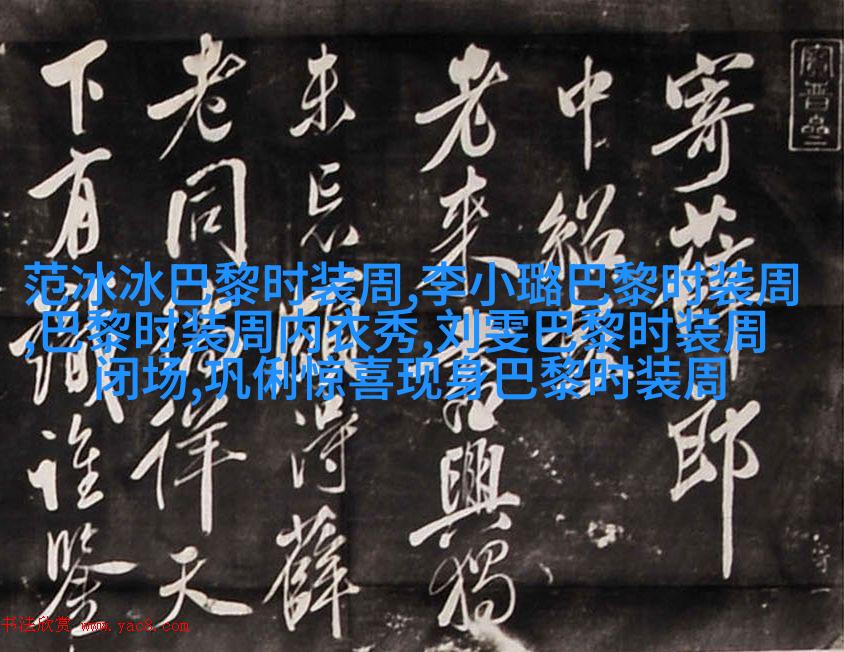 寄薛郎
中紹
老来書興獨
未忘頗得薛
老同徜徉天
下有識誰鑒
范冰冰巴黎时装周,李小璐巴黎时装周
,巴黎时装周内衣秀,刘雯巴黎时装周
闭场,巩俐惊喜现身巴黎时装周
书法欣赏 www.yac8.com